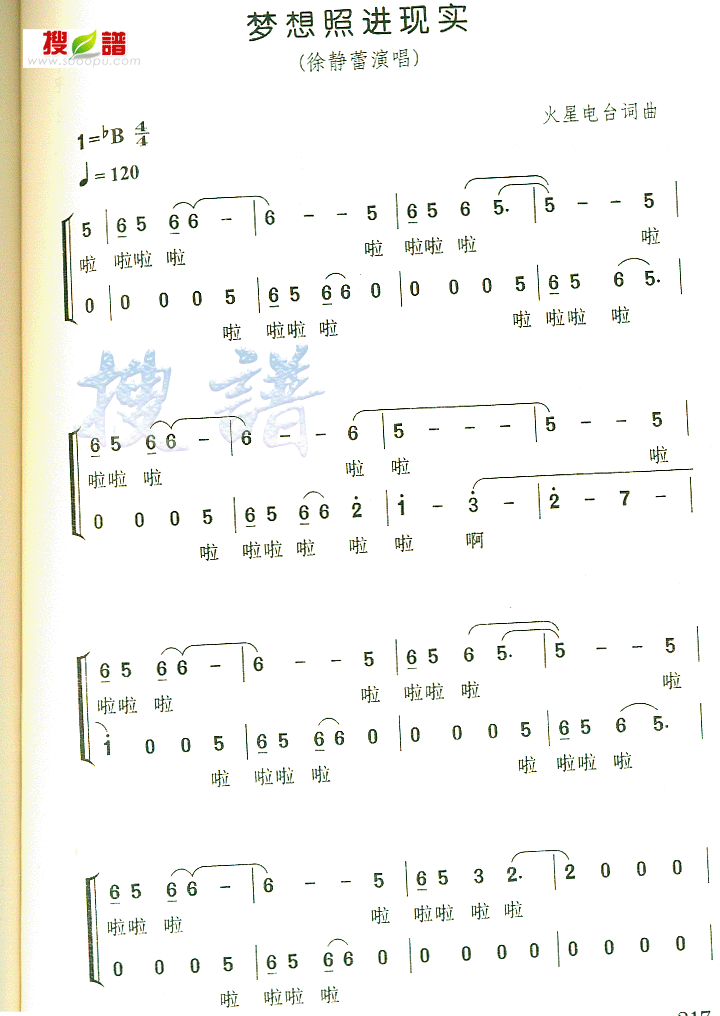 搜谱
www.sooopu.com
梦想照进现实
(徐静蕾演唱)
火星电台词曲
1=♭B 4/4
♩=120
5 | 6 5 6 6 – | 6 – – 5 | 6 5 6 5. | 5 – – 5 |
啦 啦啦 啦 啦 啦啦 啦 啦
0 | 0 0 0 5 | 6 5 6 6 0 | 0 0 0 5 | 6 5 6 5. |
啦 啦啦 啦 啦 啦啦 啦
搜谱
6 5 6 6 – | 6 – – 6 | 5 – – – | 5 – – 5 |
啦啦 啦 啦 啦 啦
0 0 0 5 | 6 5 6 6 2̇ | 1̇ – 3̇ – | 2̇ – 7 – |
啦 啦啦 啦 啦 啦 啊
6 5 6 6 – | 6 – – 5 | 6 5 6 5. | 5 – – 5 |
啦啦 啦 啦 啦啦 啦 啦
1̇ 0 0 5 | 6 5 6 6 0 | 0 0 0 5 | 6 5 6 5. |
啦 啦啦 啦 啦 啦啦 啦
6 5 6 6 – | 6 – – 5 | 6 5 3 2. | 2 0 0 0 |
啦啦 啦 啦 啦啦 啦 啦
0 0 0 5 | 6 5 6 6 0 | 0 0 0 0 | 0 0 0 0 |
啦 啦啦 啦